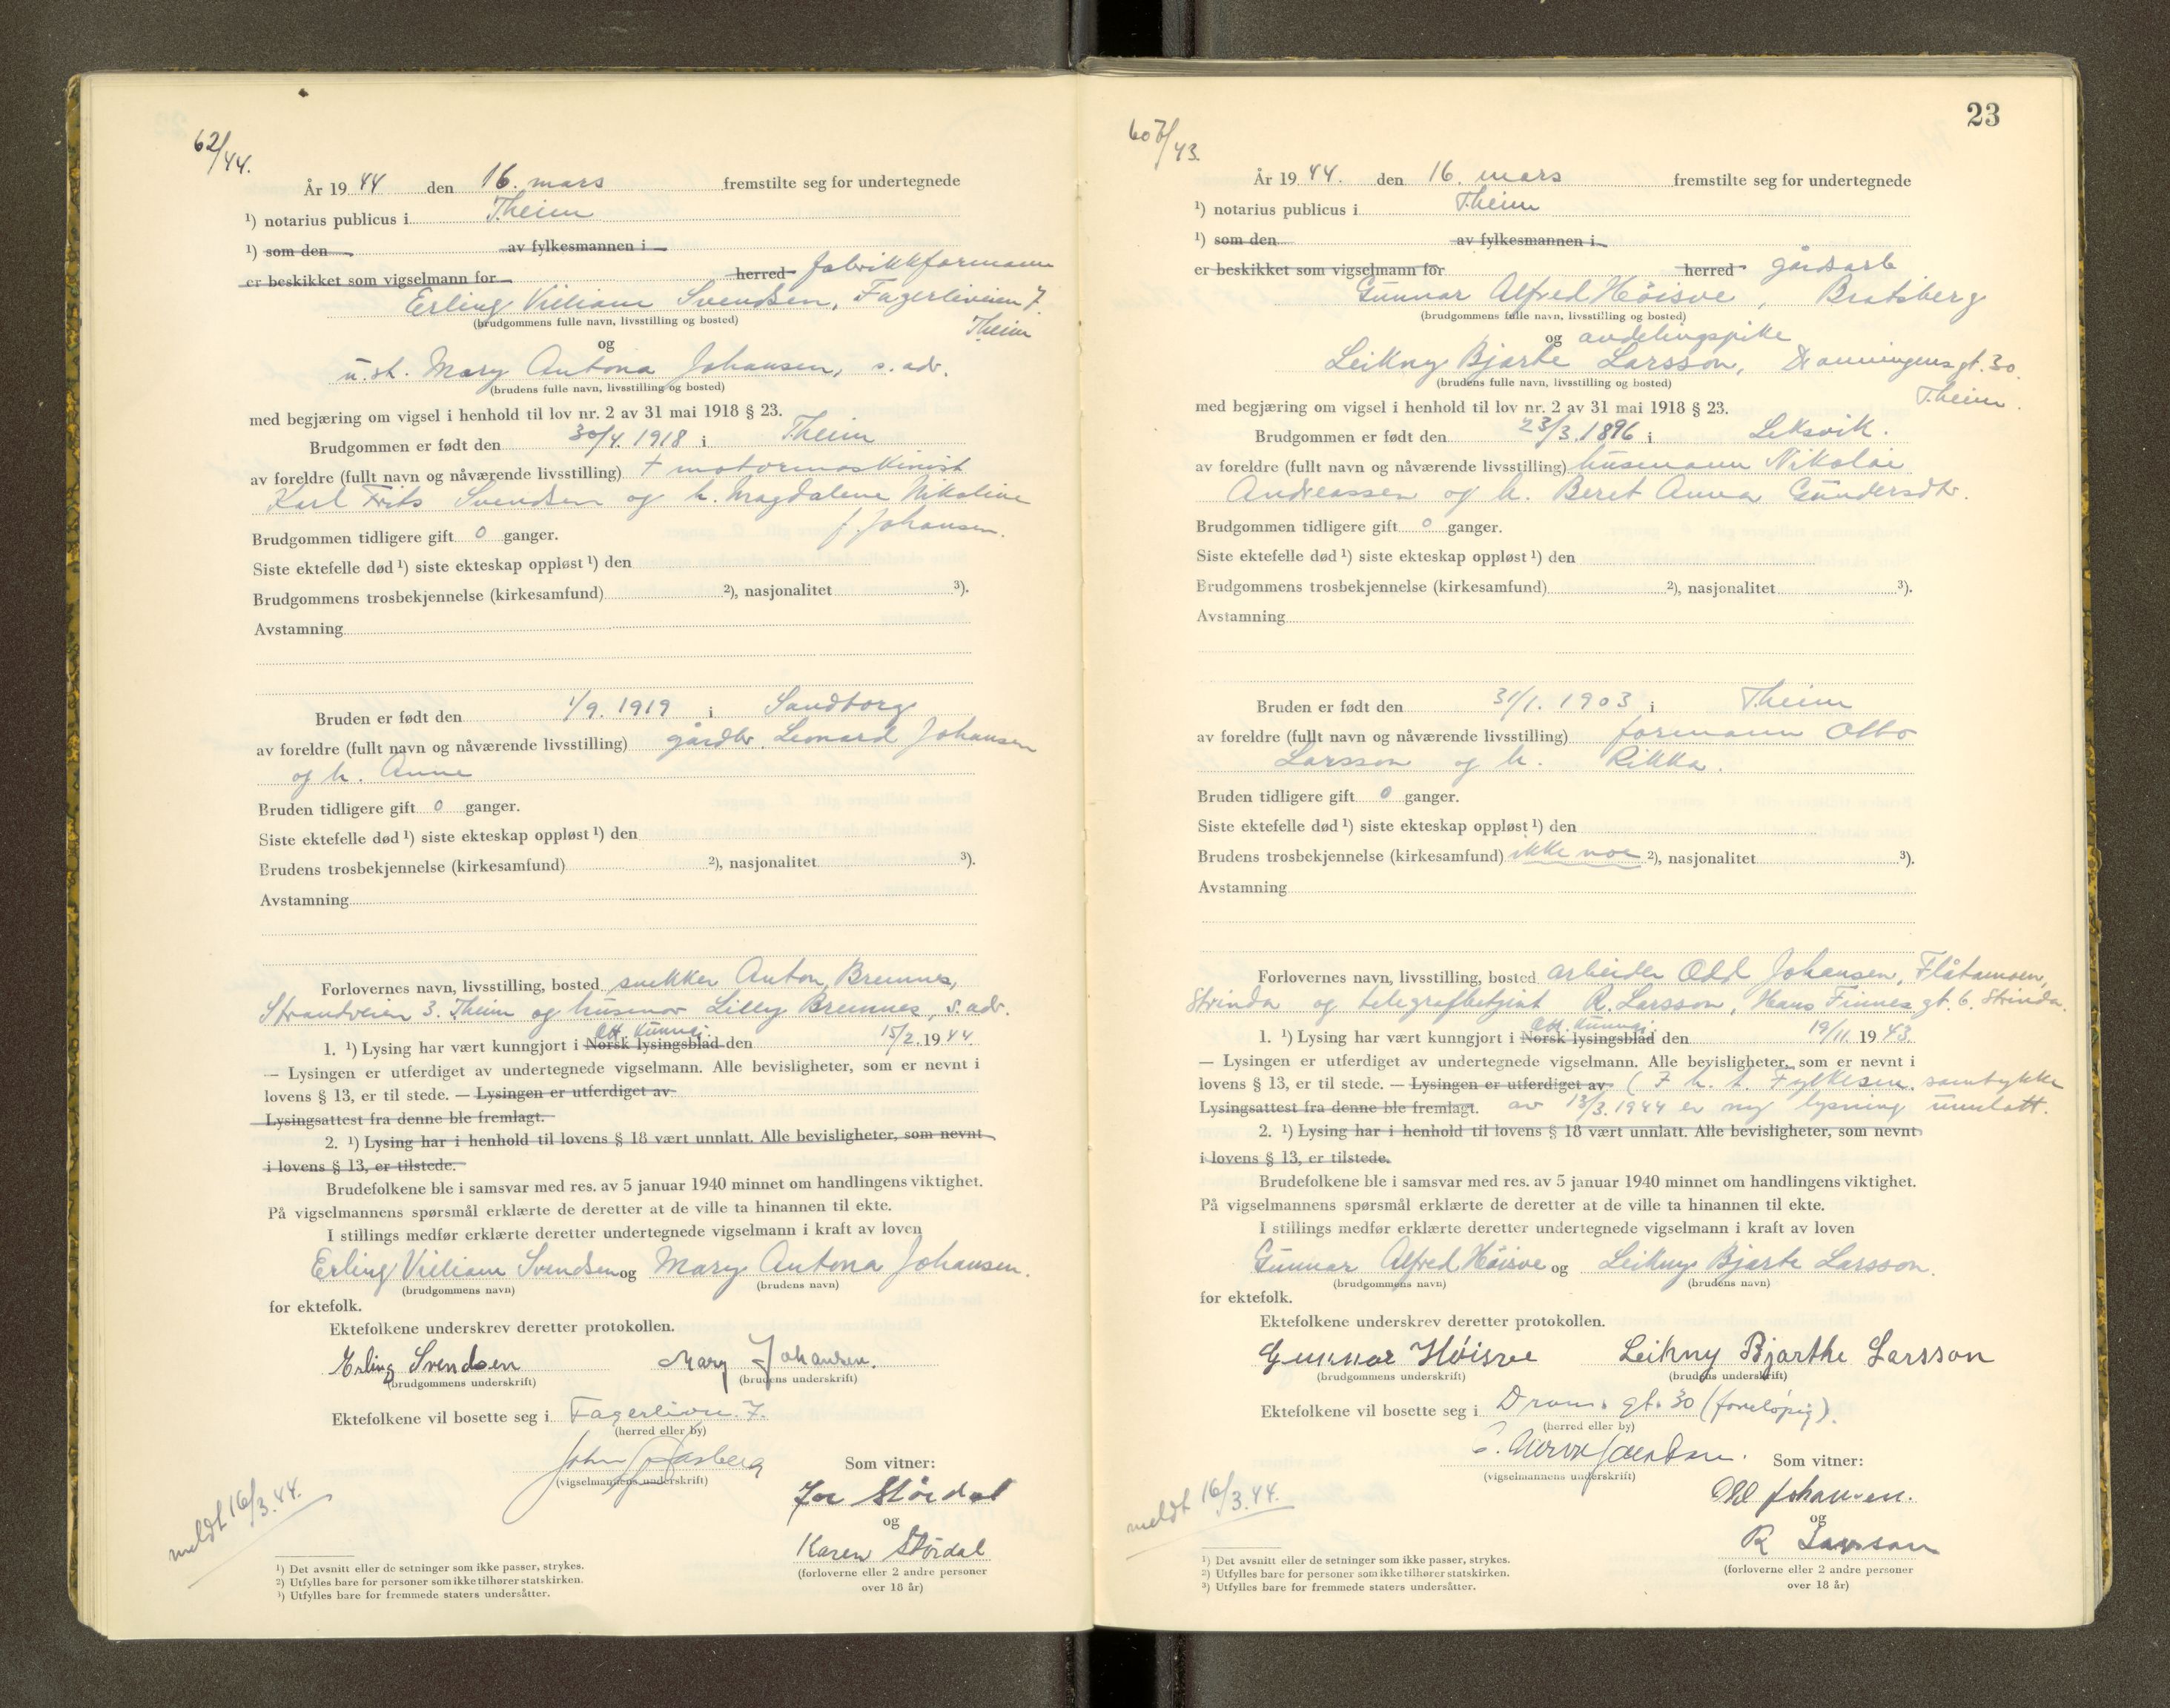 62/44.
År 19 44 den 16. mars fremstilte seg for undertegnede
¹) notarius publicus i Theim
¹) som den av fylkesmannen i
er beskikket som vigselmann for herred fabrikkformann
Erling Viliam Svendsen, Fagerliveien 7.
(brudgommens fulle navn, livsstilling og bosted)
Theim
og
u.st. Mary Antona Johansen, s. adr.
(brudens fulle navn, livsstilling og bosted)
med begjæring om vigsel i henhold til lov nr. 2 av 31 mai 1918 § 23.
Brudgommen er født den 30/4. 1918 i Theim
av foreldre (fullt navn og nåværende livsstilling) + motormaskinist
Karl Frits Svendsen og h. Magdalene Nikoline
f. Johansen.
Brudgommen tidligere gift 0 ganger.
Siste ektefelle død ¹) siste ekteskap oppløst ¹) den
Brudgommens trosbekjennelse (kirkesamfund) ²), nasjonalitet ³).
Avstamning
Bruden er født den 1/9. 1919 i Sandtorg
av foreldre (fullt navn og nåværende livsstilling) gårdbr. Leonard Johansen
og h. Anne
Bruden tidligere gift 0 ganger.
Siste ektefelle død ¹) siste ekteskap oppløst ¹) den
Brudens trosbekjennelse (kirkesamfund) ²), nasjonalitet ³).
Avstamning
Forlovernes navn, livsstilling, bosted snekker Anton Bremnes,
Strandveien 3. Theim og husmor Lilly Bremnes, s. adr.
Off. Kunngj.
1. ¹) Lysing har vært kunngjort i Norsk lysingsblad den 15/2. 19 44.
— Lysingen er utferdiget av undertegnede vigselmann. Alle bevisligheter, som er nevnt i
lovens § 13, er til stede. — Lysingen er utferdiget av
Lysingsattest fra denne ble fremlagt.
2. ¹) Lysing har i henhold til lovens § 18 vært unnlatt. Alle bevisligheter, som nevnt
i lovens § 13, er tilstede.
Brudefolkene ble i samsvar med res. av 5 januar 1940 minnet om handlingens viktighet.
På vigselmannens spørsmål erklærte de deretter at de ville ta hinannen til ekte.
I stillings medfør erklærte deretter undertegnede vigselmann i kraft av loven
Erling Viliam Svendsen og Mary Antona Johansen.
(brudgommens navn) (brudens navn)
for ektefolk.
Ektefolkene underskrev deretter protokollen.
Erling Svendsen Mary Johansen.
(brudgommens underskrift) (brudens underskrift)
Ektefolkene vil bosette seg i Fagerlivn. 7.
(herred eller by)
John Aasberg
(vigselmannens underskrift)
Som vitner:
Stördal
og
Karen Stördal
(forloverne eller 2 andre personer
over 18 år)
meldt 16/3. 44.
¹) Det avsnitt eller de setninger som ikke passer, strykes.
²) Utfylles bare for personer som ikke tilhører statskirken.
³) Utfylles bare for fremmede staters undersåtter.
23
607/43.
År 19 44. den 16. mars fremstilte seg for undertegnede
¹) notarius publicus i Theim
¹) som den av fylkesmannen i
er beskikket som vigselmann for herred gårdsarb
Gunnar Alfred Höisve, Bratsberg
(brudgommens fulle navn, livsstilling og bosted)
og avdelingspike
Leikny Bjarte Larsson, Dronningens gt. 30.
(brudens fulle navn, livsstilling og bosted)
Theim.
med begjæring om vigsel i henhold til lov nr. 2 av 31 mai 1918 § 23.
Brudgommen er født den 23/3. 1896 i Leksvik.
av foreldre (fullt navn og nåværende livsstilling) husmann Nikolai
Andreassen og h. Beret Anna Gundersdtr.
Brudgommen tidligere gift 0 ganger.
Siste ektefelle død ¹) siste ekteskap oppløst ¹) den
Brudgommens trosbekjennelse (kirkesamfund) ²), nasjonalitet ³).
Avstamning
Bruden er født den 31/1. 1903 i Theim
av foreldre (fullt navn og nåværende livsstilling) formann Otto
Larsson og h. Rikka.
Bruden tidligere gift 0 ganger.
Siste ektefelle død ¹) siste ekteskap oppløst ¹) den
Brudens trosbekjennelse (kirkesamfund) ikke noe ²), nasjonalitet ³).
Avstamning
Forlovernes navn, livsstilling, bosted arbeider Odd Johansen, Flåtamoen,
Strinda og telegrafbetjent R. Larsson, Hans Finnes gt. 6. Strinda.
Off. Kunngj.
1. ¹) Lysing har vært kunngjort i Norsk lysingsblad den 19/11. 19 43.
— Lysingen er utferdiget av undertegnede vigselmann. Alle bevisligheter, som er nevnt i
lovens § 13, er til stede. — Lysingen er utferdiget av (I h. t. Fylkesm. samtykke
Lysingsattest fra denne ble fremlagt. av 13/3. 1944 er ny lysning unnlatt.
2. ¹) Lysing har i henhold til lovens § 18 vært unnlatt. Alle bevisligheter, som nevnt
i lovens § 13, er tilstede.
Brudefolkene ble i samsvar med res. av 5 januar 1940 minnet om handlingens viktighet.
På vigselmannens spørsmål erklærte de deretter at de ville ta hinannen til ekte.
I stillings medfør erklærte deretter undertegnede vigselmann i kraft av loven
Gunnar Alfred Höisve og Leikny Bjarte Larsson.
(brudgommens navn) (brudens navn)
for ektefolk.
Ektefolkene underskrev deretter protokollen.
Gunnar Høisve Leikny Bjarthe Larsson
(brudgommens underskrift) (brudens underskrift)
Ektefolkene vil bosette seg i Dronn. gt. 30 (foreløpig).
(herred eller by)
(vigselmannens underskrift)
Som vitner:
Odd Johansen.
og
R Larsson
(forloverne eller 2 andre personer
over 18 år)
meldt 16/3. 44.
¹) Det avsnitt eller de setninger som ikke passer, strykes.
²) Utfylles bare for personer som ikke tilhører statskirken.
³) Utfylles bare for fremmede staters undersåtter.